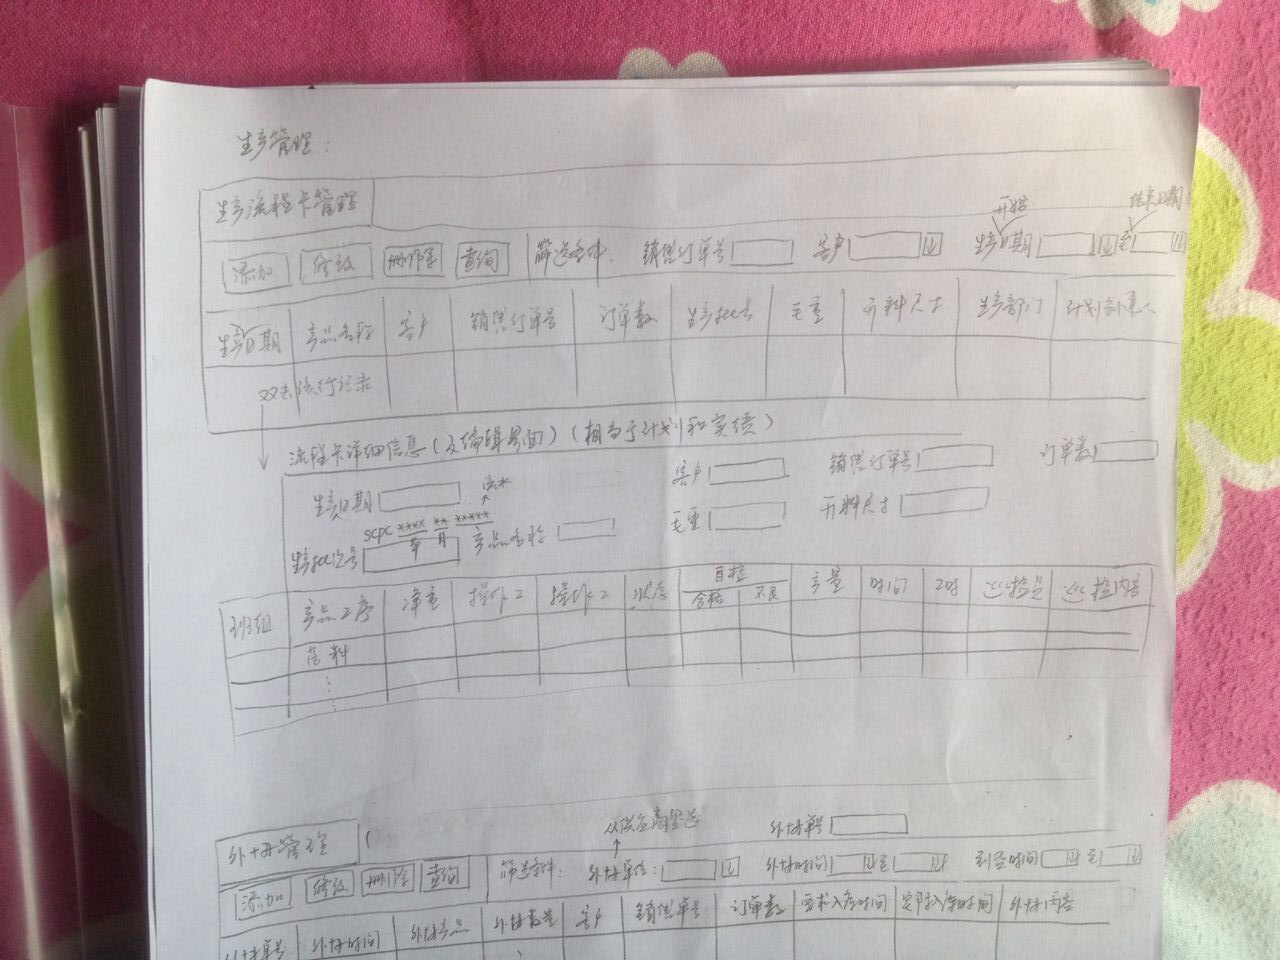 生产管理：
生产流程卡管理
添加 修改 删除 查询 筛选条件： 销售订单号 客户 生产日期 至
开始 结束日期
生产日期 产品名称 客户 销售订单号 订单数 生产批号 毛重 开料尺寸 生产部门 计划创建人
双击该行记录
流程卡详细信息（及编辑界面）（相当于计划和实绩）
生产日期 客户 销售订单号 订单数
流水
scpc **** ** *****
年 月
生产批次号 产品名称 毛重 开料尺寸
班组 产品工序 净重 操作工 操作工 状态 自检 产量 时间 工时 巡检员 巡检内容
合格 不良
落料
外协管理
从供应商里选
外协单号
添加 修改 删除 查询 筛选条件： 外协单位： 外协时间 至 到货时间 至
外协单号 外协时间 外协产品 外协数量 客户 销售单号 订单数 要求入库时间 实际入库时间 外协内容